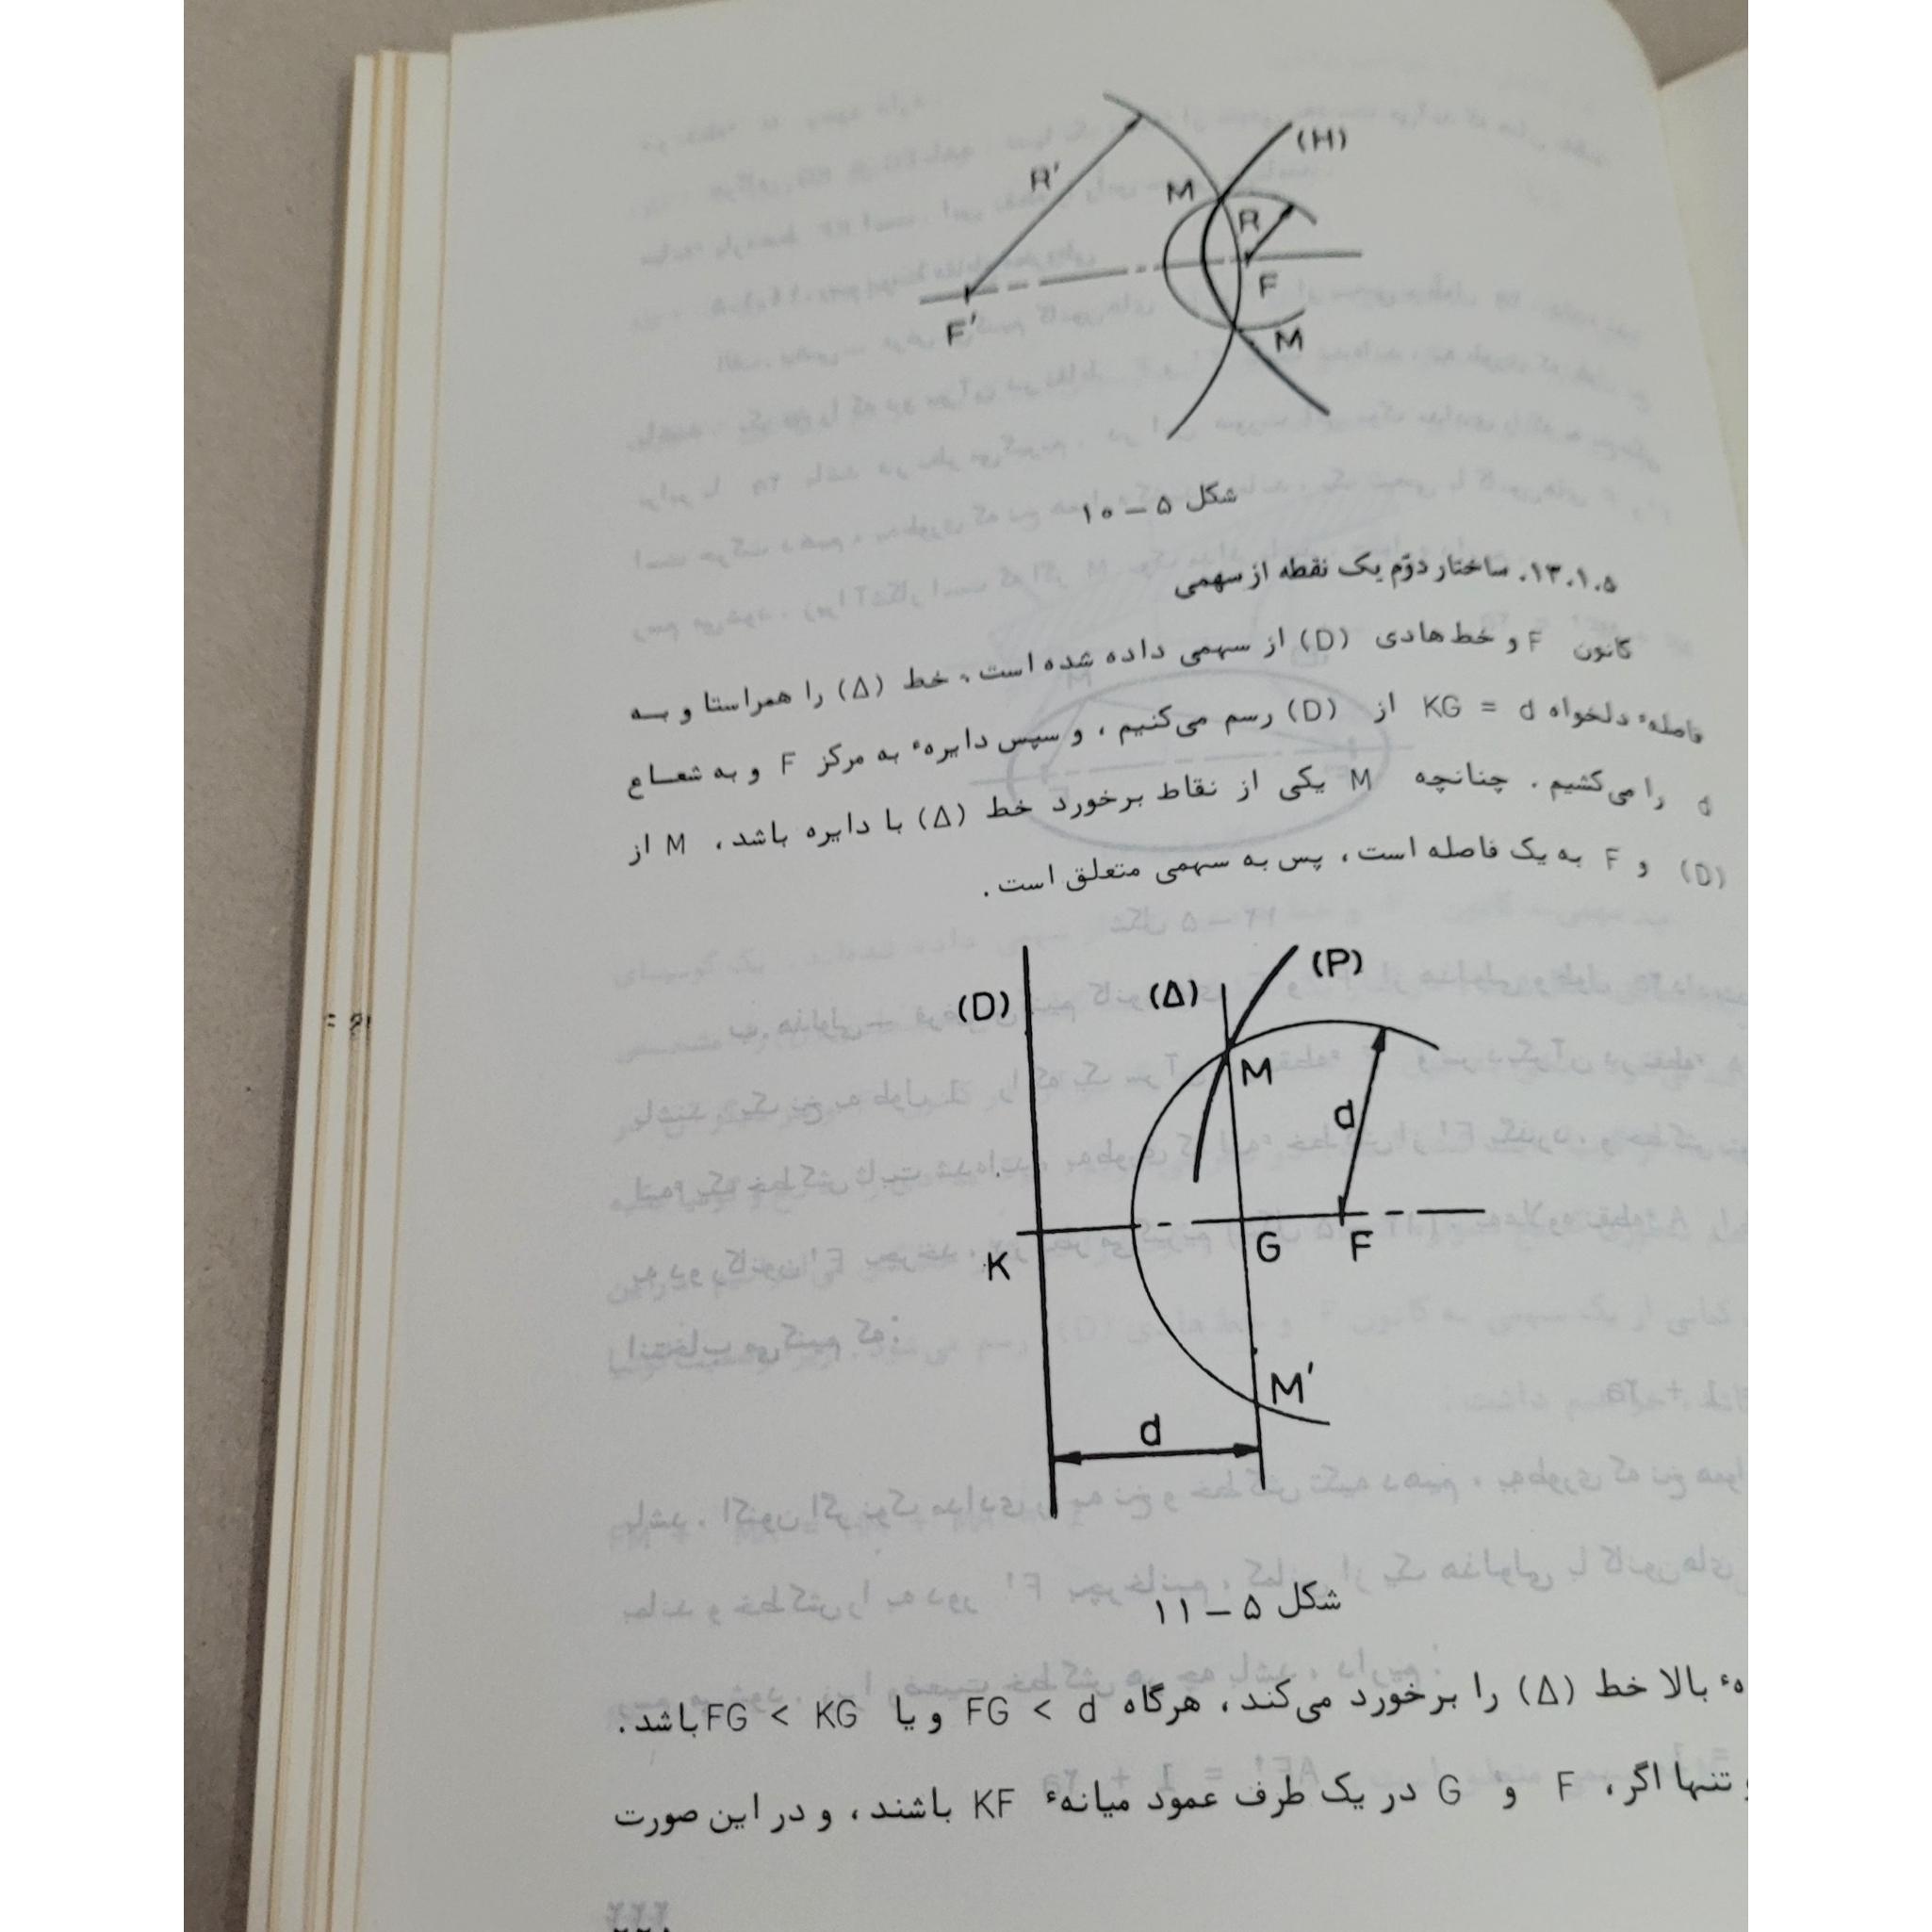 (H)
R'
M
R
F
F'
M
شکل ۵ – ۱۰
۱۳.۱.۵. ساختار دوّم یک نقطه از سهمی
کانون F و خط هادی (D) از سهمی داده شده است. خط (Δ) را همراستا و به
فاصلهٔ دلخواه KG = d از (D) رسم می‌کنیم، و سپس دایرهٔ به مرکز F و به شعاع
d را می‌کشیم. چنانچه M یکی از نقاط برخورد خط (Δ) با دایره باشد، M از
(D) و F به یک فاصله است، پس به سهمی متعلق است.
(P)
(D) (Δ)
M
d
K G F
M'
d
شکل ۵ – ۱۱
بالا خط (Δ) را برخورد می‌کند، هرگاه FG < d و یا FG < KG باشد.
تنها اگر، F و G در یک طرف عمود میانهٔ KF باشند، و در این صورت